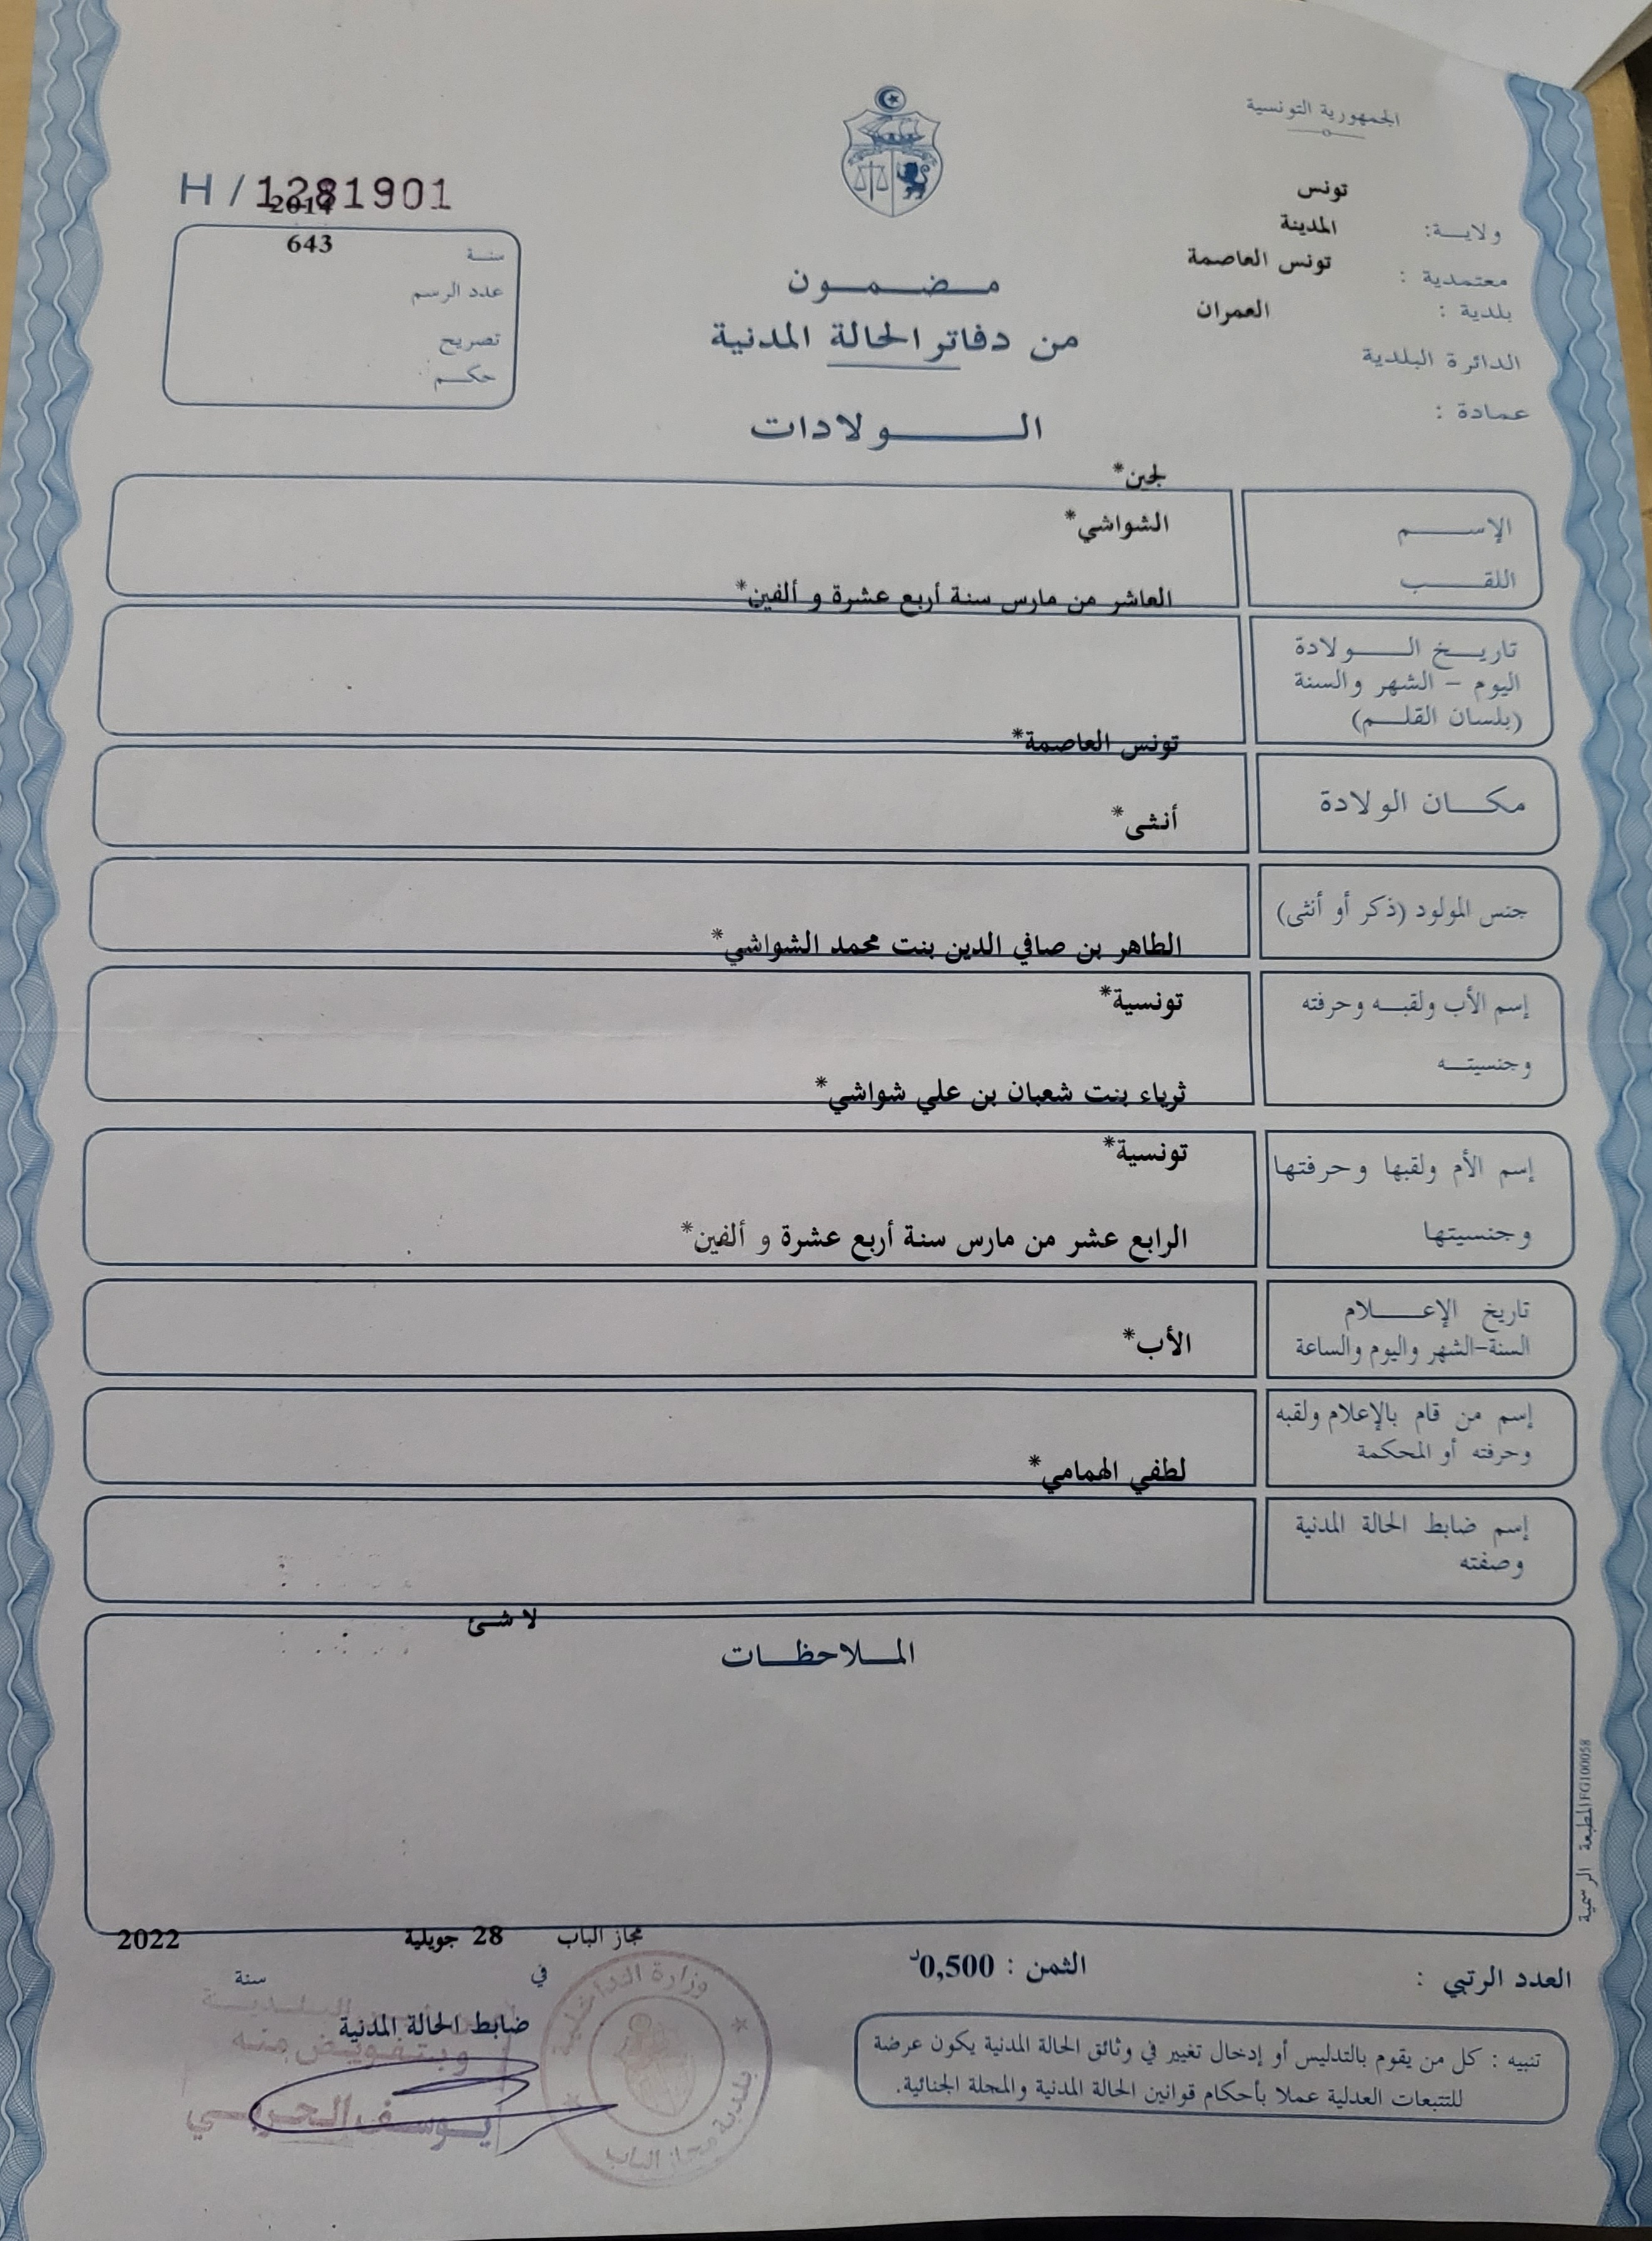 الجمهورية التونسية
H / 1281901
2014
643
سنة
عدد الرسم
تصريح
حكم
تونس
ولاية:
المدينة
معتمدية :
تونس العاصمة
بلدية :
العمران
الدائرة البلدية
عمادة :
مضمون
من دفاتر الحالة المدنية
الولادات
لجين*
الإسم
الشواشي*
اللقب
العاشر من مارس سنة أربع عشرة و ألفين*
تاريخ الولادة
اليوم - الشهر والسنة
(بلسان القلم)
تونس العاصمة*
مكان الولادة
أنثى*
جنس المولود (ذكر أو أنثى)
الطاهر بن صافي الدين بنت محمد الشواشي*
إسم الأب ولقبه وحرفته
تونسية*
وجنسيته
ثرياء بنت شعبان بن علي شواشي*
إسم الأم ولقبها وحرفتها
تونسية*
وجنسيتها
الرابع عشر من مارس سنة أربع عشرة و ألفين*
تاريخ الإعلام
السنة-الشهر واليوم والساعة
الأب*
إسم من قام بالإعلام ولقبه
وحرفته أو المحكمة
لطفي الهمامي*
إسم ضابط الحالة المدنية
وصفته
لا شئ
الملاحظات
المطبعة الرسمية FG100058
مجاز الباب 28 جويلية 2022
في سنة
العدد الرتبي :
الثمن : 0,500د
ضابط الحالة المدنية
وبتفويض منه
يوسف الحربي
وزارة الداخلية
بلدية مجاز الباب
تنبيه : كل من يقوم بالتدليس أو إدخال تغيير في وثائق الحالة المدنية يكون عرضة
للتتبعات العدلية عملا بأحكام قوانين الحالة المدنية والمجلة الجنائية.